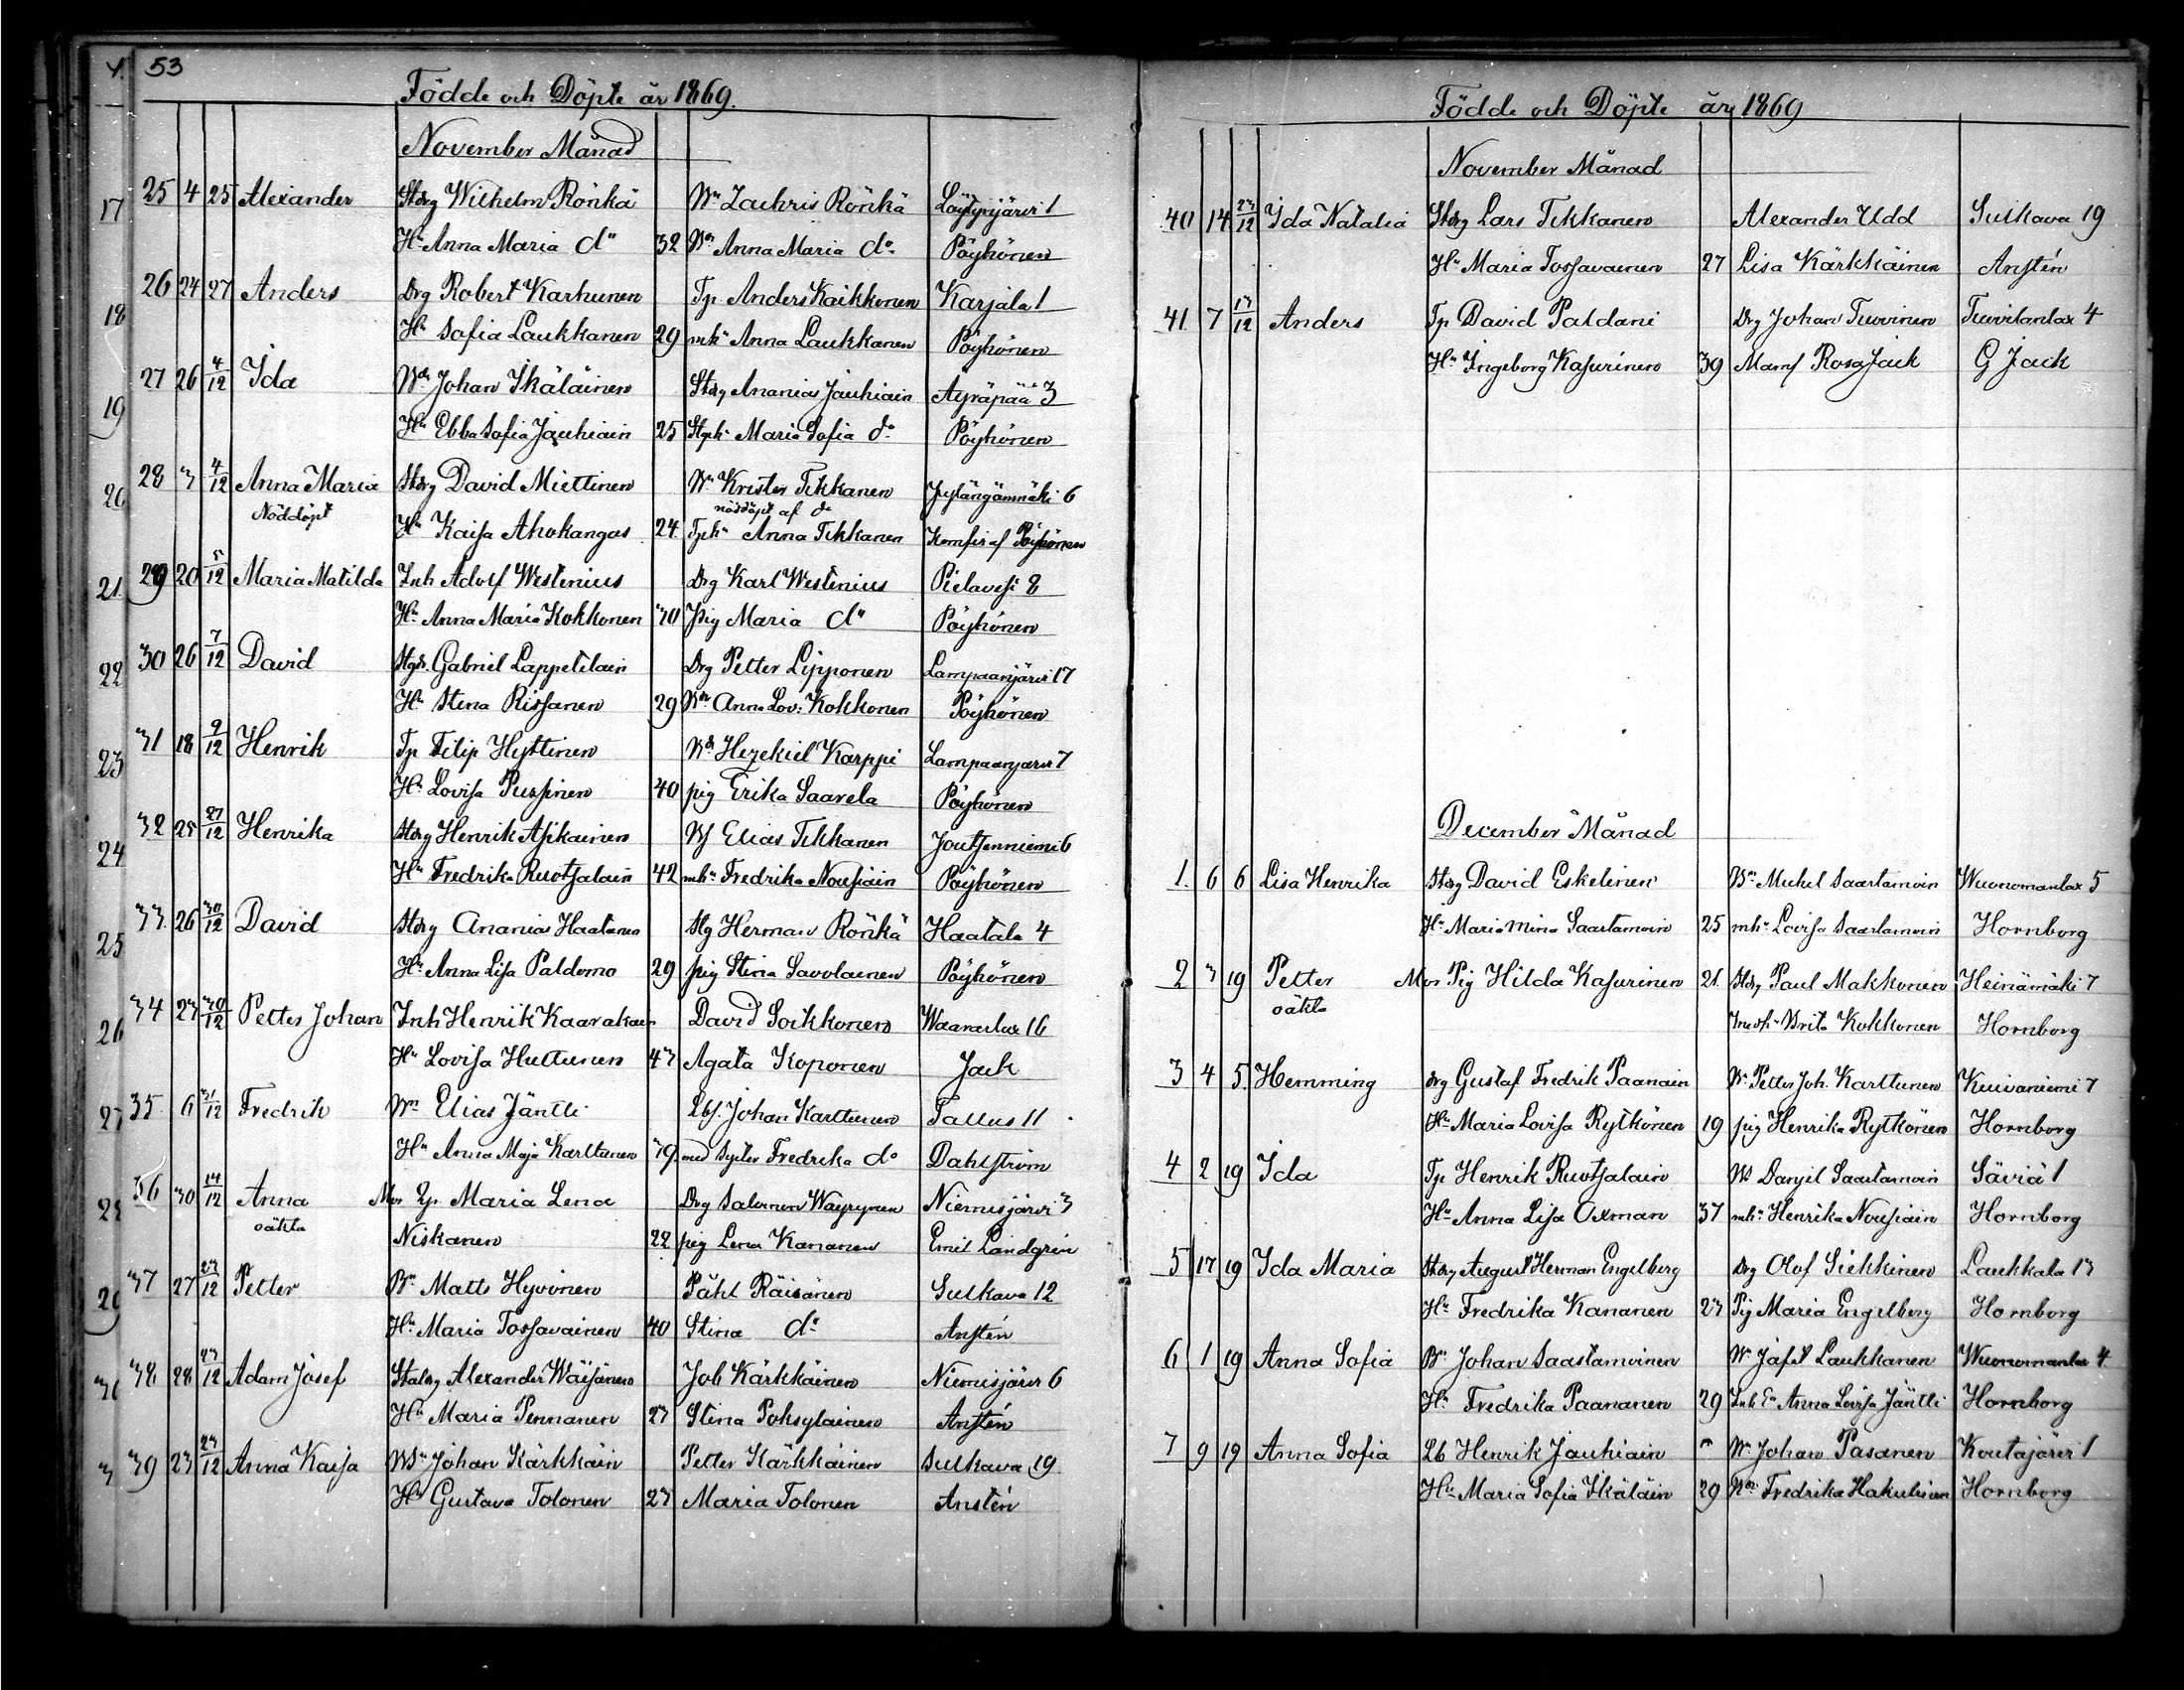 53
Födde och Döpte år 1869.
November Månad
25 4 25 Alexander Stdrg Wilhelm Rönkä Wn Zachris Rönkä Löytynjärvi 1
Hu Anna Maria do 32 Wn Anna Maria do Pöyhönen
26 24 27 Anders Drg Robert Karhunen Tp Anders Kaikkonen Karjala 1
Hu Sofia Laukkanen 29 mhu Anna Laukkanen Pöyhönen
27 26 4/12 Ida Johan Ikäläinen Stdrg Ananias Jauhiain Äyräpää 3
Hu Ebba Sofia Jauhiain 25 Maria Sofia do Pöyhönen
28 3 4/12 Anna Maria Stdrg David Miettinen Wn Krister Tikkanen 6
Nöddöpt nöddöpt af do
Hu Kaisa Ahokangas 24 Anna Tikkanen Komfir af Pöyhönen
29 20 5/12 Maria Matilda Inh Adolf Westenius Drg Karl Westenius Pielavesi 8
Hu Anna Maria Kokkonen 30 pig Maria do Pöyhönen
30 26 7/12 David Gabriel Lappetelain Drg Petter Lipponen Lampaanjärvi 17
Hu Stina Rissanen 29 Anna Lov: Kokkonen Pöyhönen
31 18 9/12 Henrik Tp Filip Hyttinen Hezekiel Karppi Lampaanjärvi 7
Hu Lovisa Pussinen 40 pig Erika Saarela Pöyhönen
32 25 27/12 Henrika Stdrg Henrik Asikainen Elias Tikkanen Joutsenniemi 6
Hu Fredrika Ruotsalain 42 mhu Fredrika Nousiain Pöyhönen
33 26 30/12 David Stdrg Ananias Haatanen Herman Rönkä Haatala 4
Hu Anna Lisa Paldomo 29 pig Stina Savolainen Pöyhönen
34 23 30/12 Petter Johan Inh Henrik Kaarakain David Soikkonen 16
Hu Lovisa Huttunen 43 Agata Koponen Jack
35 6 31/12 Fredrik Wn Elias Jäntti Johan Karttunen Tallus 11
Hu Anna Maja Karttunen 39 med syster Fredrika do Dahlström
36 30 14/12 Anna Mor Maria Lena Drg Salomon Wäyrynen Niemisjärvi 3
oäkta Niskanen 22 pig Lena Kananen Emil Landgrén
37 27 23/12 Petter Bn Matts Hyvönen Påhl Räisänen Sulkava 12
Hu Maria Tossavainen 40 Stina do Anstén
38 28 23/12 Adam Josef Alexander Wäisänen Job Kärkkäinen Niemisjärvi 6
Hu Maria Pennanen 23 Stina Anstén
39 23 23/12 Anna Kaisa Johan Kärkkäin Petter Kärkkäinen Sulkava 19
Hu Gustava Tolonen 23 Maria Tolonen Anstén
Födde och Döpte år 1869
November Månad
40 14 23/12 Ida Natalia Stdrg Lars Tikkanen Alexander Udd Sulkava 19
Hu Maria Tossavainen 27 Lisa Kärkkäinen Anstén
41 7 13/12 Anders Tp David Paldani Drg Johan Tuovinen Tuovilanlax 4
Hu Ingeborg Kasurinen 39 Mams Rosa Jack G Jack
December Månad
1 6 6 Lisa Henrika Stdrg David Eskelinen Bn Mickel Saastamoin Wuonomanlax 5
Hu Maria Mina Saastamoin 25 mhu Lovisa Saastamoin Hornborg
2 3 19 Petter Mor Pig Hilda Kasurinen 21 Stdrg Paul Makkonen Heinämäki 7
oäkta Brita Kokkonen Hornborg
3 4 5 Hemming drg Gustaf Fredrik Paanain Wn Petter Joh. Karttunen Kuivaniemi 7
Hu Maria Lovisa Rytkönen 19 pig Henrika Rytkönen Hornborg
4 2 19 Ida Tp Henrik Ruotsalain Danjil Saastamoin Säviä 1
Hu Anna Lisa Axman 37 mhu Henrika Nousiain Hornborg
5 17 19 Ida Maria Stdrg August Herman Engelberg drg Olof Siekkinen Laukkala 13
Hu Fredrika Kananen 23 Pig Maria Engelberg Hornborg
6 1 19 Anna Sofia Bn Johan Saastamoinen Wn Jafet Laukkanen Wuonomanlax 4
Hu Fredrika Paananen 29 Anna Lovisa Jäntti Hornborg
7 9 19 Anna Sofia Lb Henrik Jauhiain Wn Johan Pasanen Koutajärvi 1
Hu Maria Sofia Ikäläin 29 Fredrika Hakulinen Hornborg